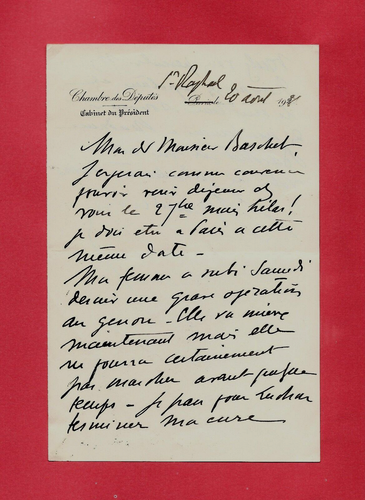 St Raphael
Chambre des Députés
Cabinet du Président
Paris, le 20 août 193
Mon cher Monsieur Baschet,
J'espérais comme convenu
pouvoir venir déjeuner chez
vous le 27ème mais hélas!
je dois être à Paris à cette
même date -
Ma femme a subi Samedi
dernier une grave opération
au genou - Elle va mieux
maintenant mais elle
ne pourra certainement
pas marcher avant quelque
temps - Je pars pour
terminer ma cure